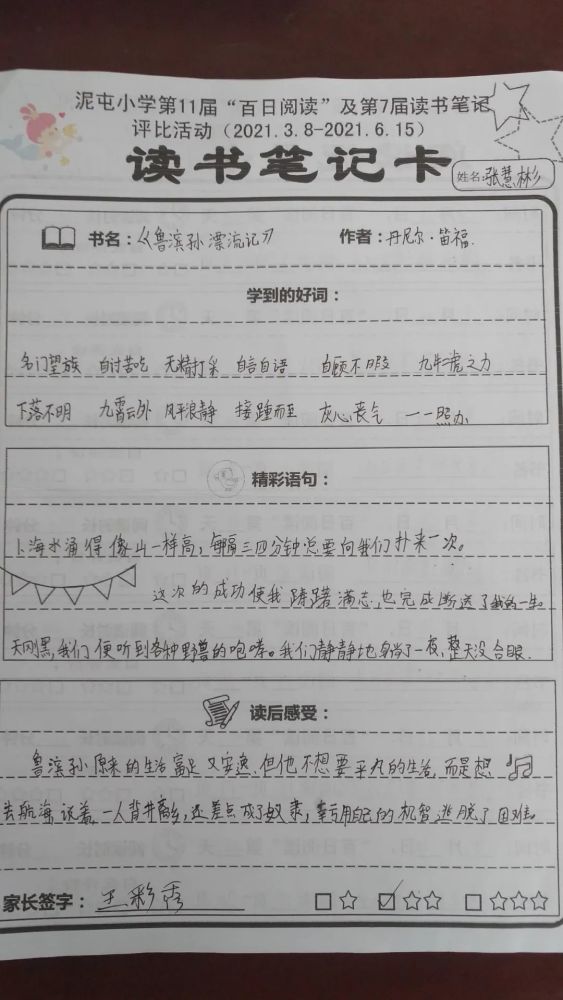 泥屯小学第11届“百日阅读”及第7届读书笔记
评比活动（2021.3.8-2021.6.15）
读书笔记卡
姓名:张慧彬
书名：《鲁滨孙漂流记》 作者：丹尼尔·笛福.
学到的好词：
名门望族 自讨苦吃 无精打采 自言自语 自顾不暇 九牛虎之力
下落不明 九霄云外 风平浪静 接踵而至 灰心丧气 一一照办
精彩语句：
1.海水涌得像山一样高，每隔三四分钟总要向我们扑来一次。
这次的成功使我踌躇满志，也完成断送了我的一生。
天刚黑，我们便听到各种野兽的咆哮。我们静静地躺了一夜，整天没合眼.
读后感受：
鲁滨孙原来的生活富足又安逸，但他不想要平凡的生活，而是想
去航海，说着，一人背井离乡，还差点成了奴隶，幸亏用自己的机智逃脱了困难。
家长签字：王彩秀